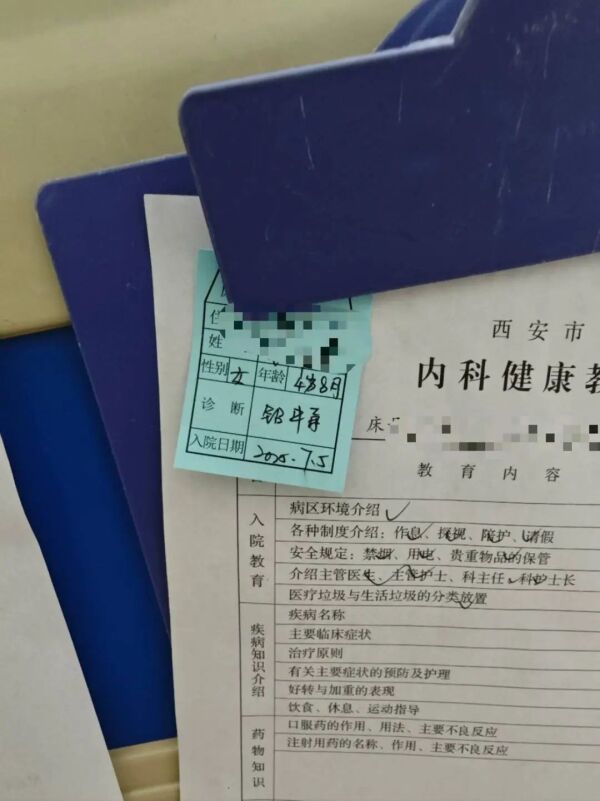 住
姓
性别 女 年龄 4岁8月
诊 断 铅中毒
入院日期 2025.7.5
西安市
内科健康教
床号
教育内容
入院教育
病区环境介绍✓
各种制度介绍：作息、探视、陪护、请假
安全规定：禁烟、用电、贵重物品的保管
介绍主管医生、主管护士、科主任、科护士长
医疗垃圾与生活垃圾的分类放置
疾病知识介绍
疾病名称
主要临床症状
治疗原则
有关主要症状的预防及护理
好转与加重的表现
饮食、休息、运动指导
药物知识
口服药的作用、用法、主要不良反应
注射用药的名称、作用、主要不良反应